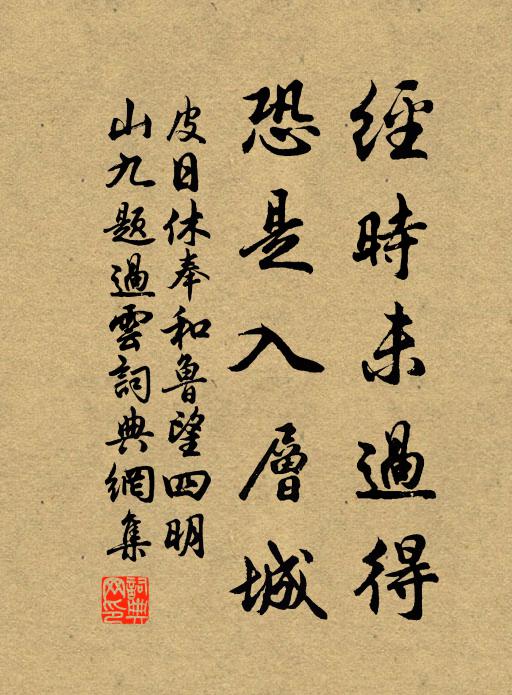 經時未過得
恐是入層城
皮日休奉和魯望四明
山九題過雲詞典網集
詞典
网印